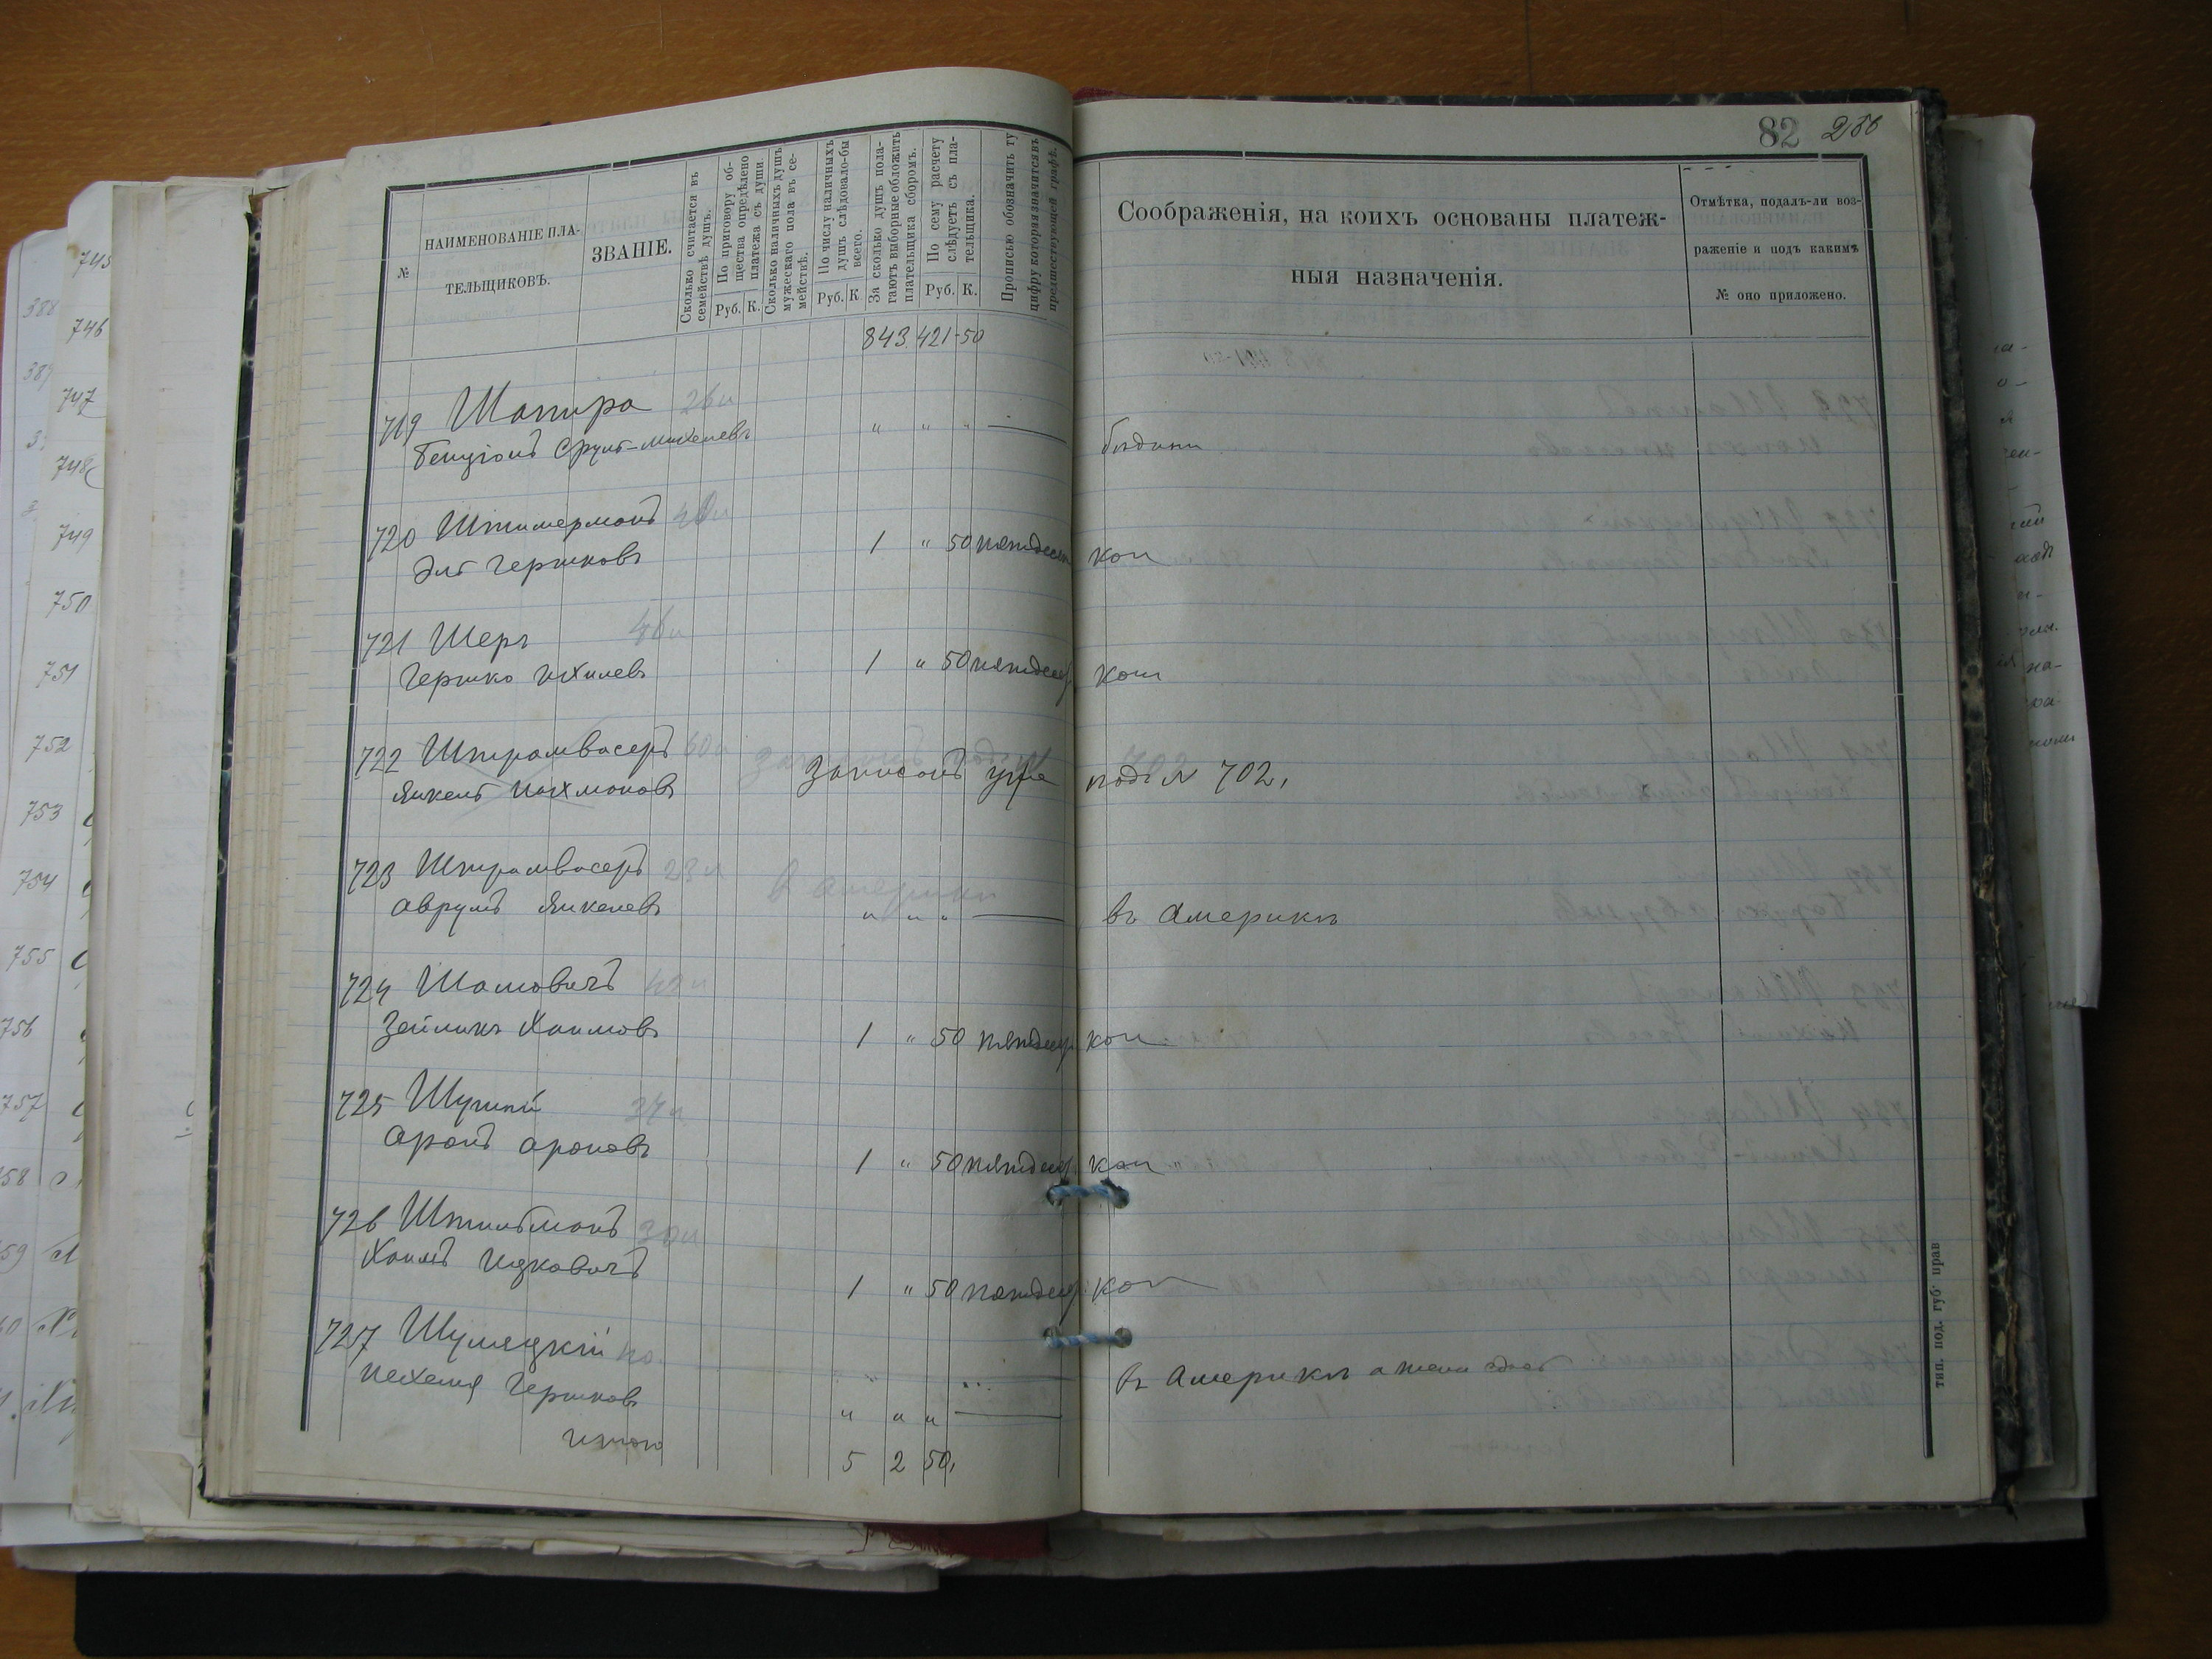 82 250
№
НАИМЕНОВАНІЕ ПЛА-
ТЕЛЬЩИКОВЪ.
ЗВАНІЕ.
Сколько считается въ
семействѣ душъ.
По приговору об-
щества опредѣлено
платежа съ души.
Руб. К.
Сколько наличныхъ душъ
мужескаго пола въ се-
мействѣ.
По числу наличныхъ
душъ слѣдовало-бы
всего.
Руб. К
За сколько душъ пола-
гаютъ выборные обложить
плательщика сборомъ.
По сему расчету
слѣдуетъ съ пла-
тельщика.
Руб. К.
Прописью обозначить ту
цифру которая значится въ
предшествующей графѣ.
Соображенія, на коихъ основаны платеж-
ныя назначенія.
Отмѣтка, подалъ-ли воз-
раженіе и подъ какимъ
№ оно приложено.
843 421-50
719 Шапиро 26л
Бенціонъ Срулъ-Михелевъ " " " —
бѣдный
720 Штимерманъ
Эль Гершковъ 1 " 50 пятдесят коп
721 Шеръ 46л
Гершко Ихилевъ 1 " 50 пятдес. коп
722 Штромвасеръ 60л
Янкель Нахмоновъ Записанъ уже подъ № 702,
723 Штромвасеръ 23л
Аврумъ Янкелевъ " " " — въ Америкѣ
724 Шамовичъ
Зейликъ Хаимовъ 1 " 50 пятдес. коп
725
Аронъ Ароновъ 1 " 50 пятдес. коп "
726 Штильманъ 30л
Хаимъ Ицковичъ 1 " 50 пятдес. коп
727 Шумяцкій
Нехемя Гершковъ " " " — въ Америкѣ а жена
итого 5 2 50,
тип. под. губ. прав
745
746
747
748
749
750
751
752
753
754
755
756
757